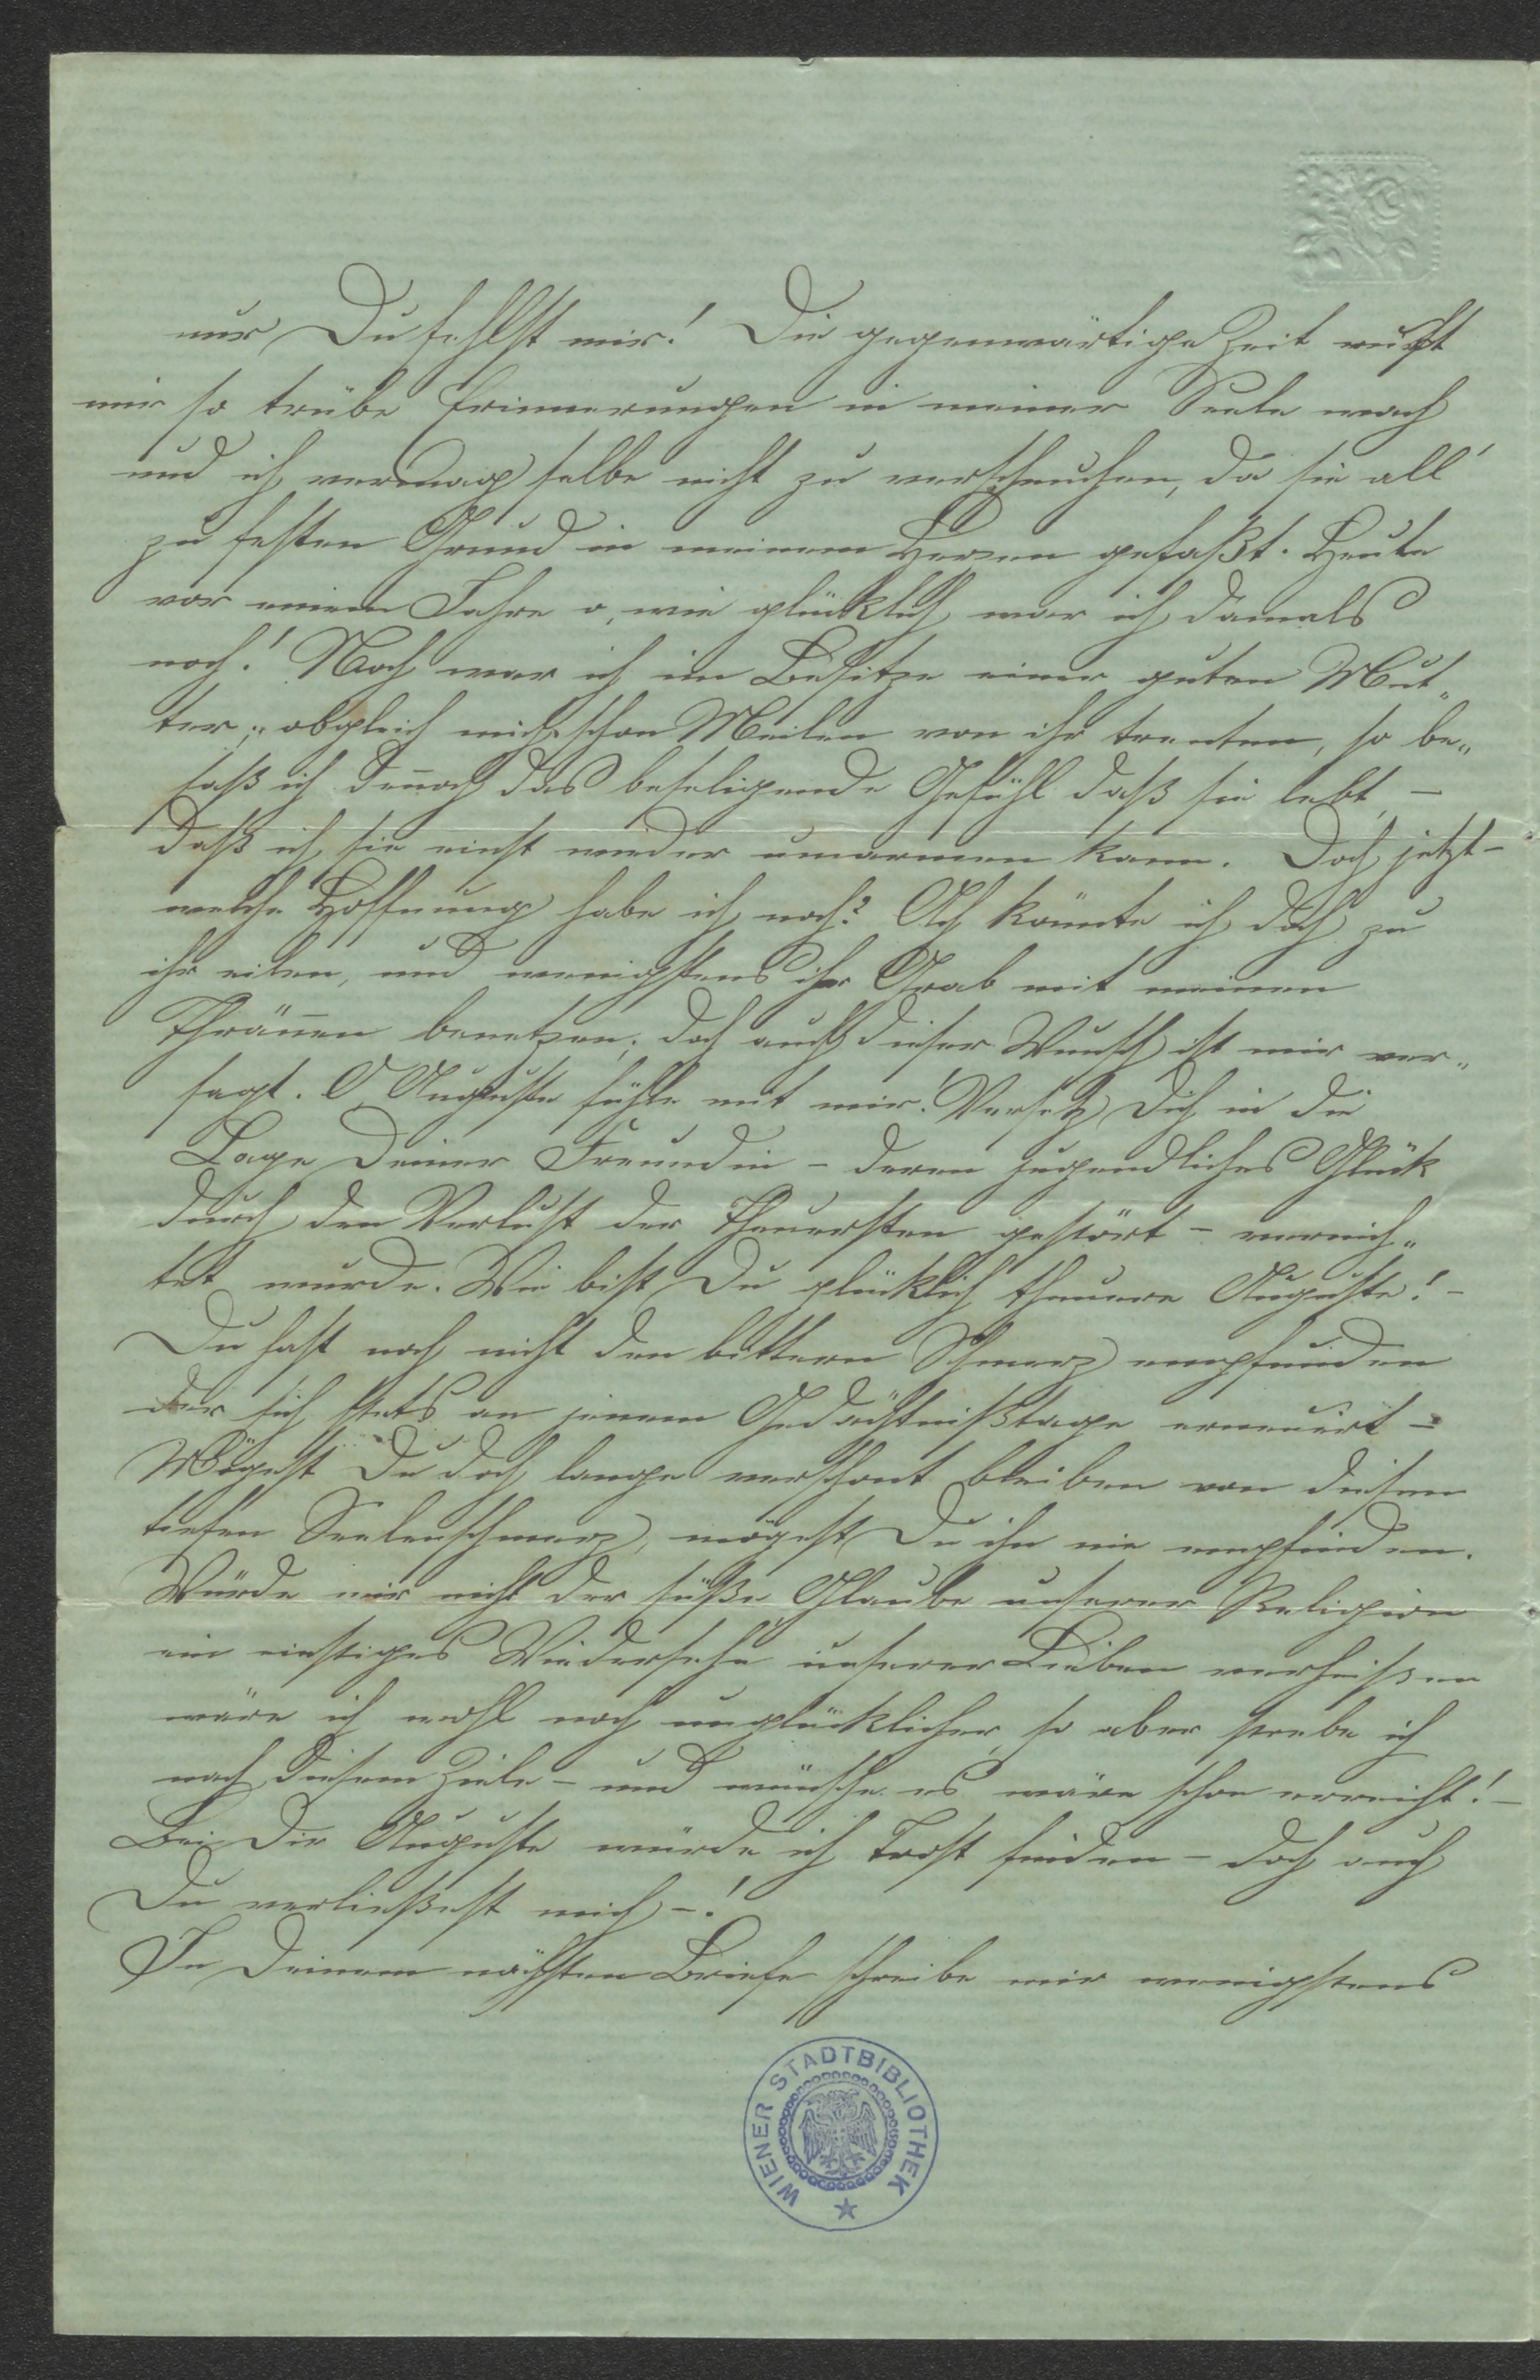 nur Du fehlst mir! Die gegenwärtige Zeit ruft
mir so trübe Erinnerungen in meiner Seele wach
und ich vermag selbe nicht zu verscheuchen, da sie all'
zu festen Grund in meinem Herzen gefaßt. Heute
vor einem Jahre o, wie glücklich war ich damals
noch! Noch war ich im Besitze einer guten Mut„
ter; obgleich mich schon Meilen von ihr trenten, so be„
saß ich dennoch das beseligende Gefühl daß sie lebt, –
daß ich sie einst wieder umarmen kann. Doch jetzt –
welche Hoffnung habe ich noch? Ach könnte ich doch zu
ihr eilen, und wenigstens ihr Grab mit meinen
Thränen benetzen; doch auch dieser Wunsch ist mir ver„
sagt. O Auguste fühle mit mir! Versetz Dich in die
Lage Deiner Freundin – deren jugendliches Glück
durch den Verlust der Theuersten gestört – vernich„
tet wurde. Wie bist Du glücklich theuere Auguste! –
Du hast noch nicht den bittern Schmerz empfunden
der sich stets an jenem Gedächtnißtage erneuert –
Mögest Du doch lange verschont bleiben von diesem
tiefen Seelenschmerz, mögest Du ihn nie empfinden.
Würde mir nicht der süße Glaube unserer Religion
ein einstiges Wiedersehn unserer Lieben verheißen
wäre ich wohl noch unglücklicher, so aber strebe ich
nach diesem Ziele – und wünsche es wäre schon erreicht! –
Bei Dir Auguste würde ich Trost finden – doch auch
Du verließest mich –!
In Deinem nächsten Briefe schreibe mir wenigstens
WIENER STADTBIBLIOTHEK